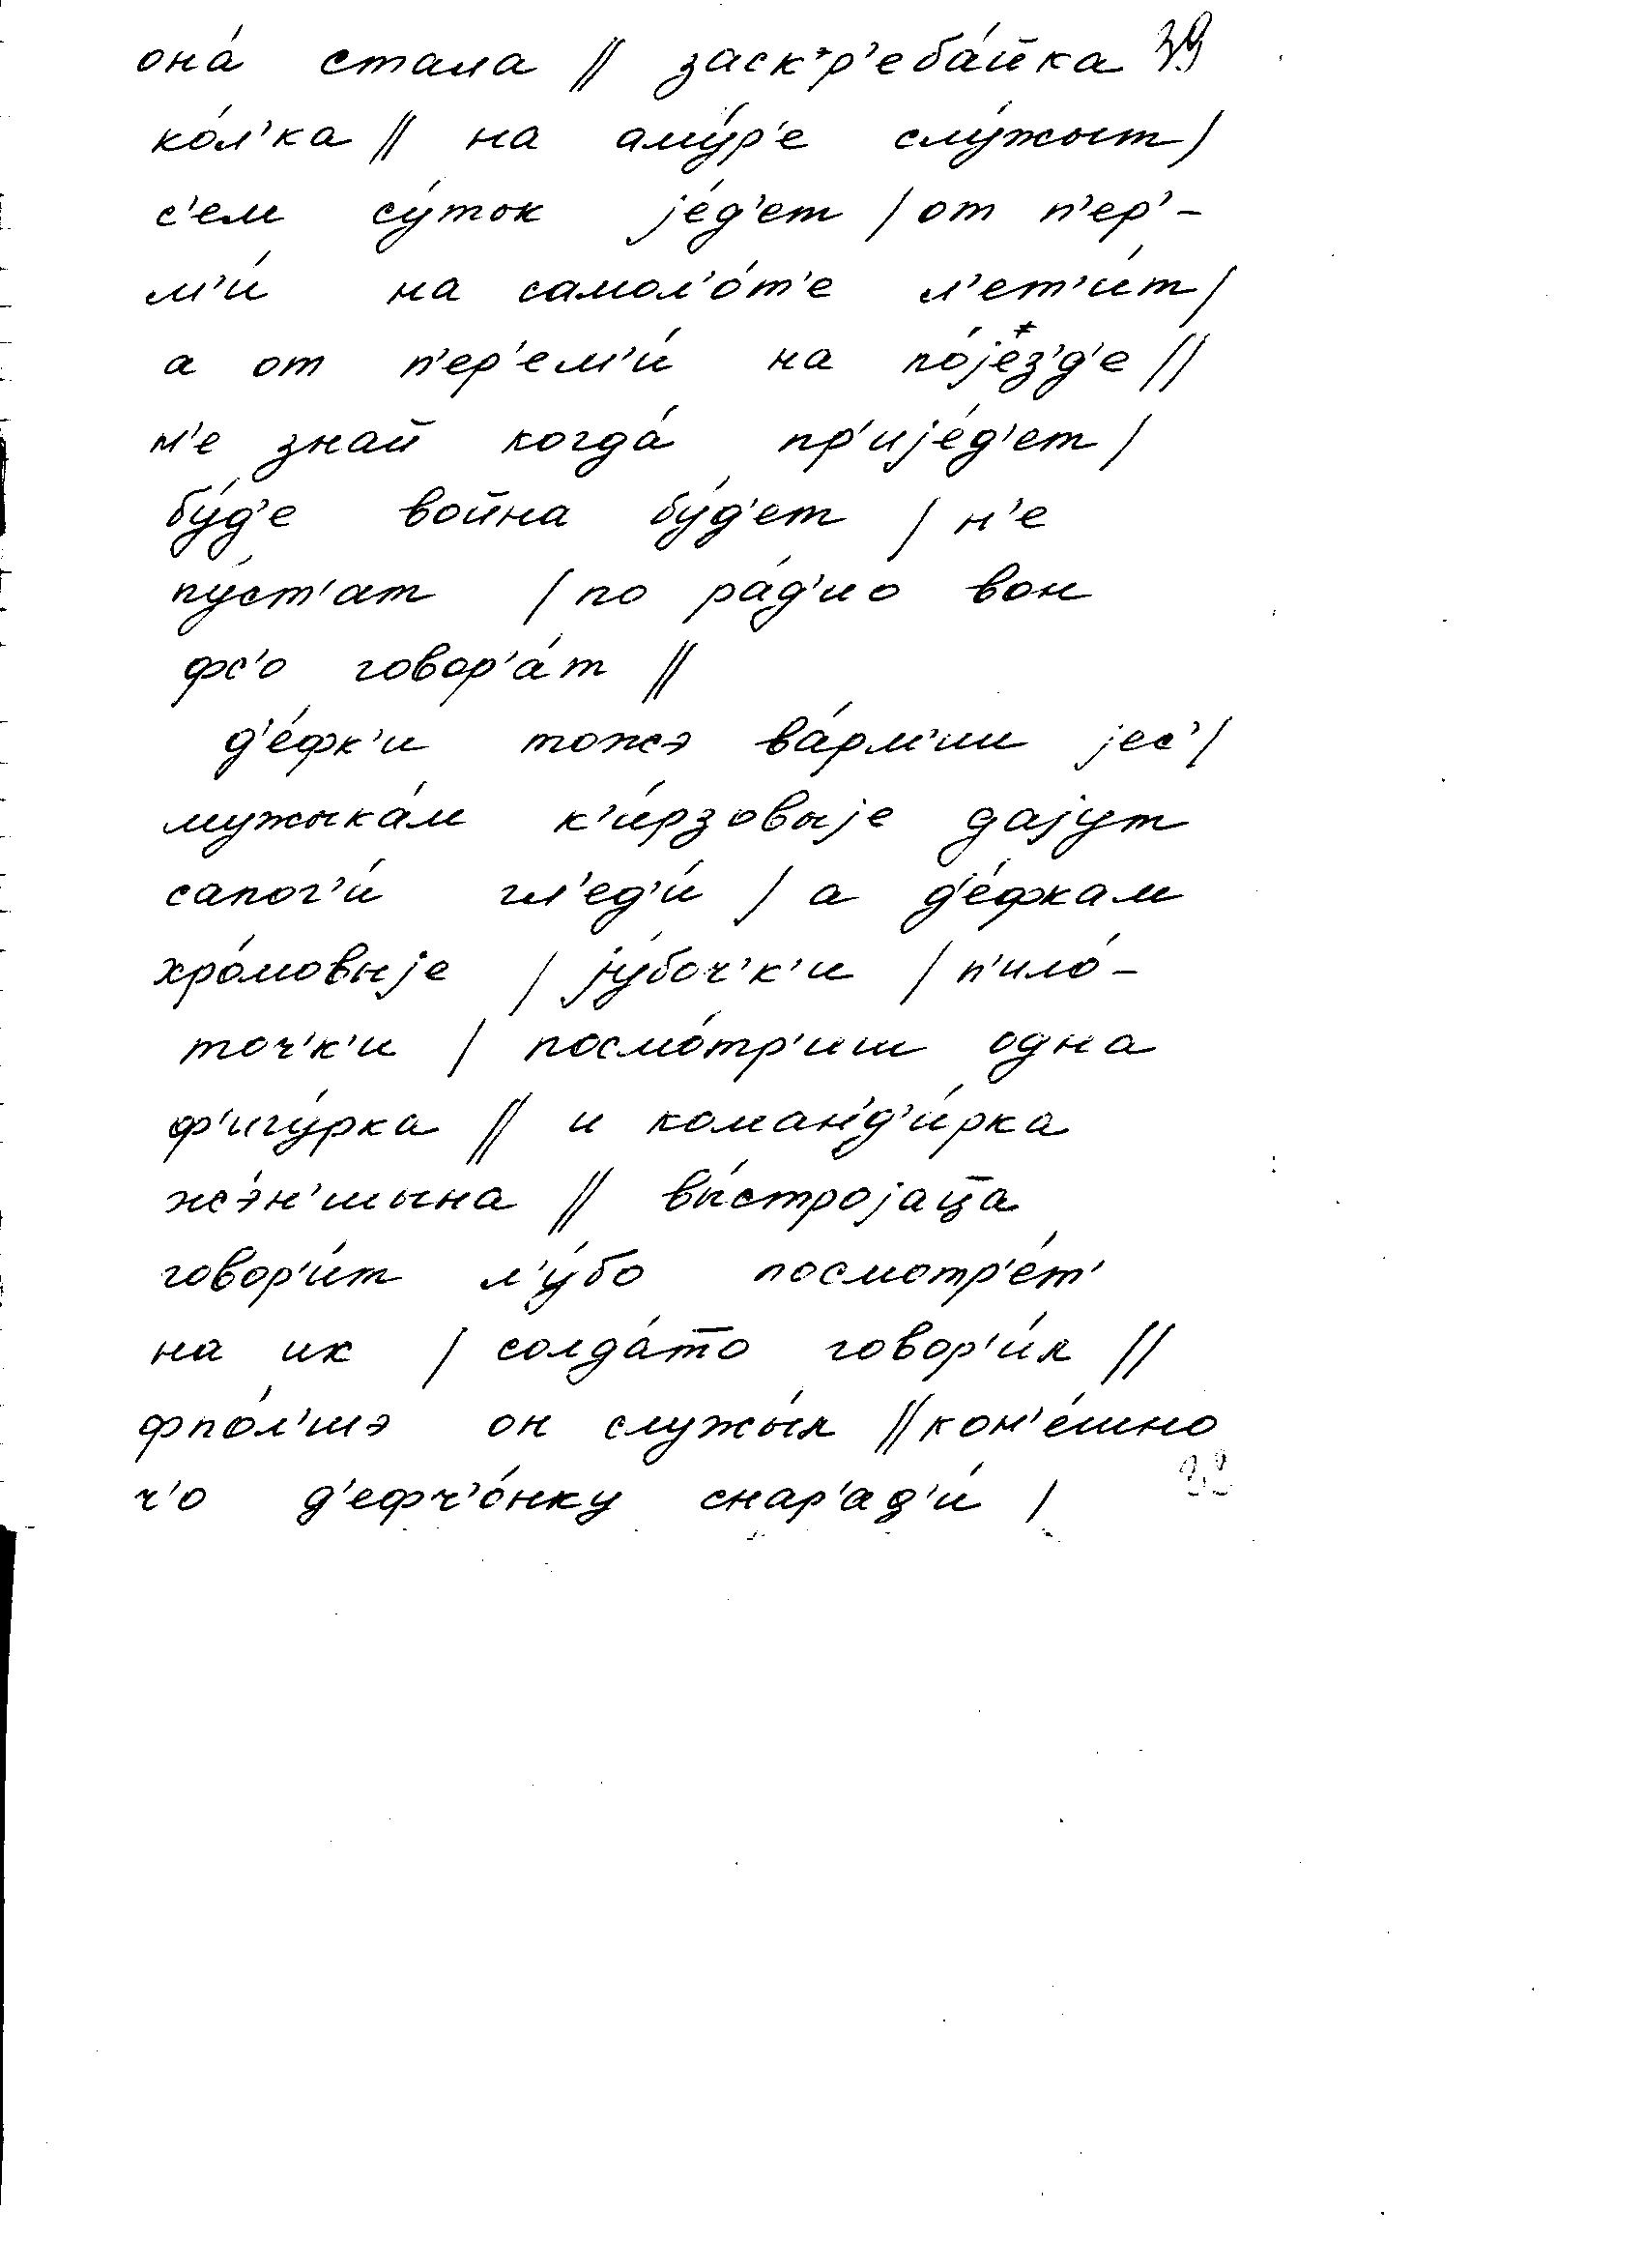 она́ стала // заск'р'еба́йка 39
ко́л'ка // на аму́р'е слу́жыт /
с'ем су́ток је́д'ет / от п'ер'-
м'и́ на самол'о́т'е л'ет'и́т /
а от п'ер'ем'и́ на по́јез'д'е //
н'е знай когда́ пр'ије́д'ет /
бу́д'е война бу́д'ет / н'е
пу́ст'ат / по ра́д'ио вон
фс'о говор'а́т //
д'е́фк'и тожэ ва́рм'ии јес' /
мужыка́м к'и́рзовыје дајут
сапог'и́ гл'ед'и́ / а д'е́фкам
хро́мовыје / ју́боч'к'и / п'ило́-
точ'к'и / посмо́тр'иш одна
ф'игу́рка // и коман'д'и́рка
жэ́н'шына // вы́стројац̄а
говор'и́т л'у́бо посмотр'е́т'
на их / солда́т̄о говор'и́л //
фпо́л'шэ он служы́л // кон'е́шно
ч'о д'ефч'о́нку снар'ад'и́ /